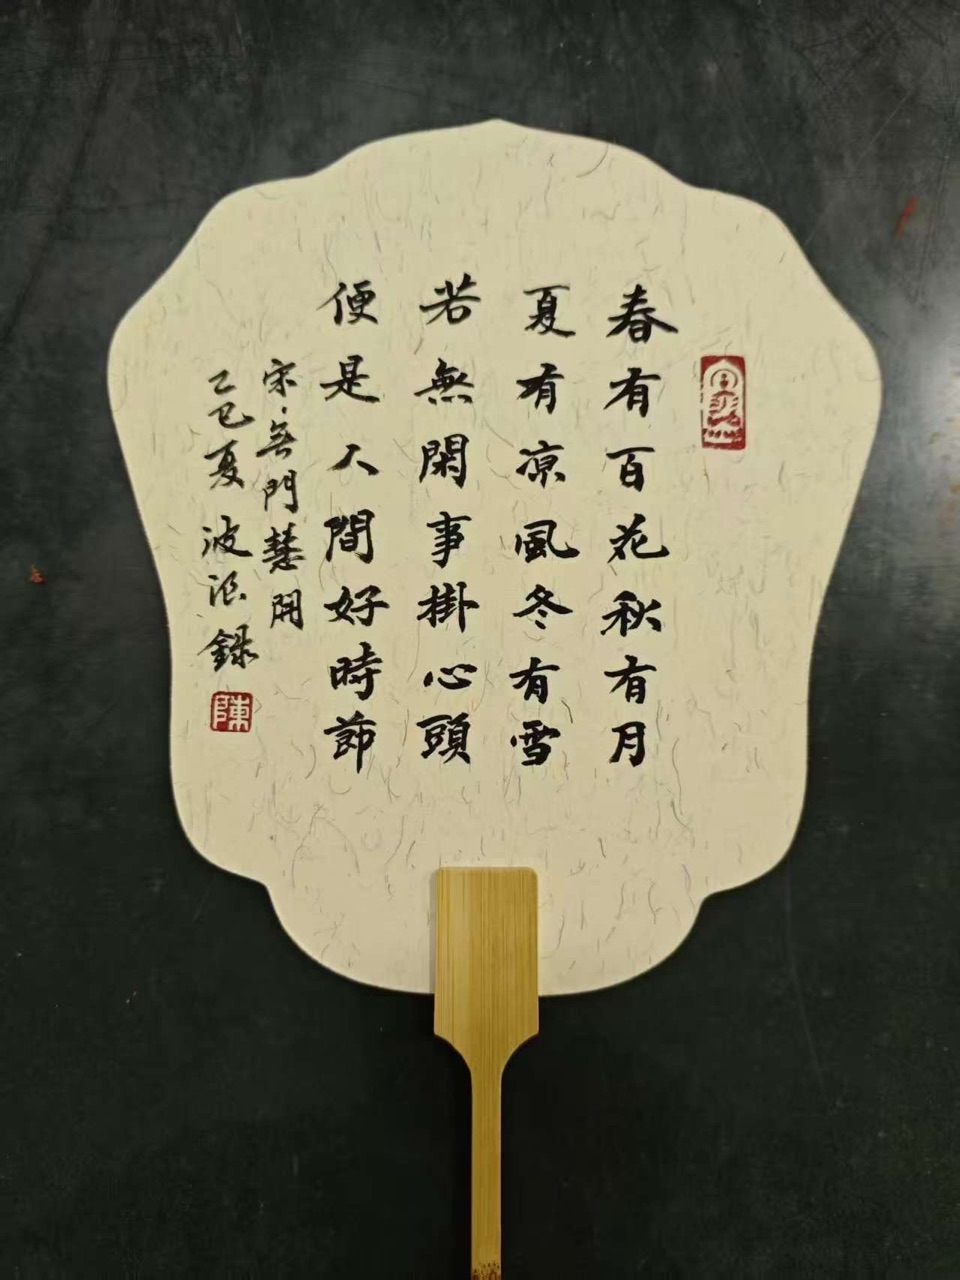 春有百花秋有月
夏有凉風冬有雪
若無閑事掛心頭
便是人間好時節
宋·無門慧開
乙巳夏 波浪錄
陳